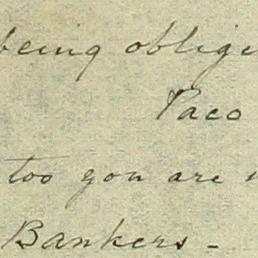 being oblige
Paco
too you are
Bankers -